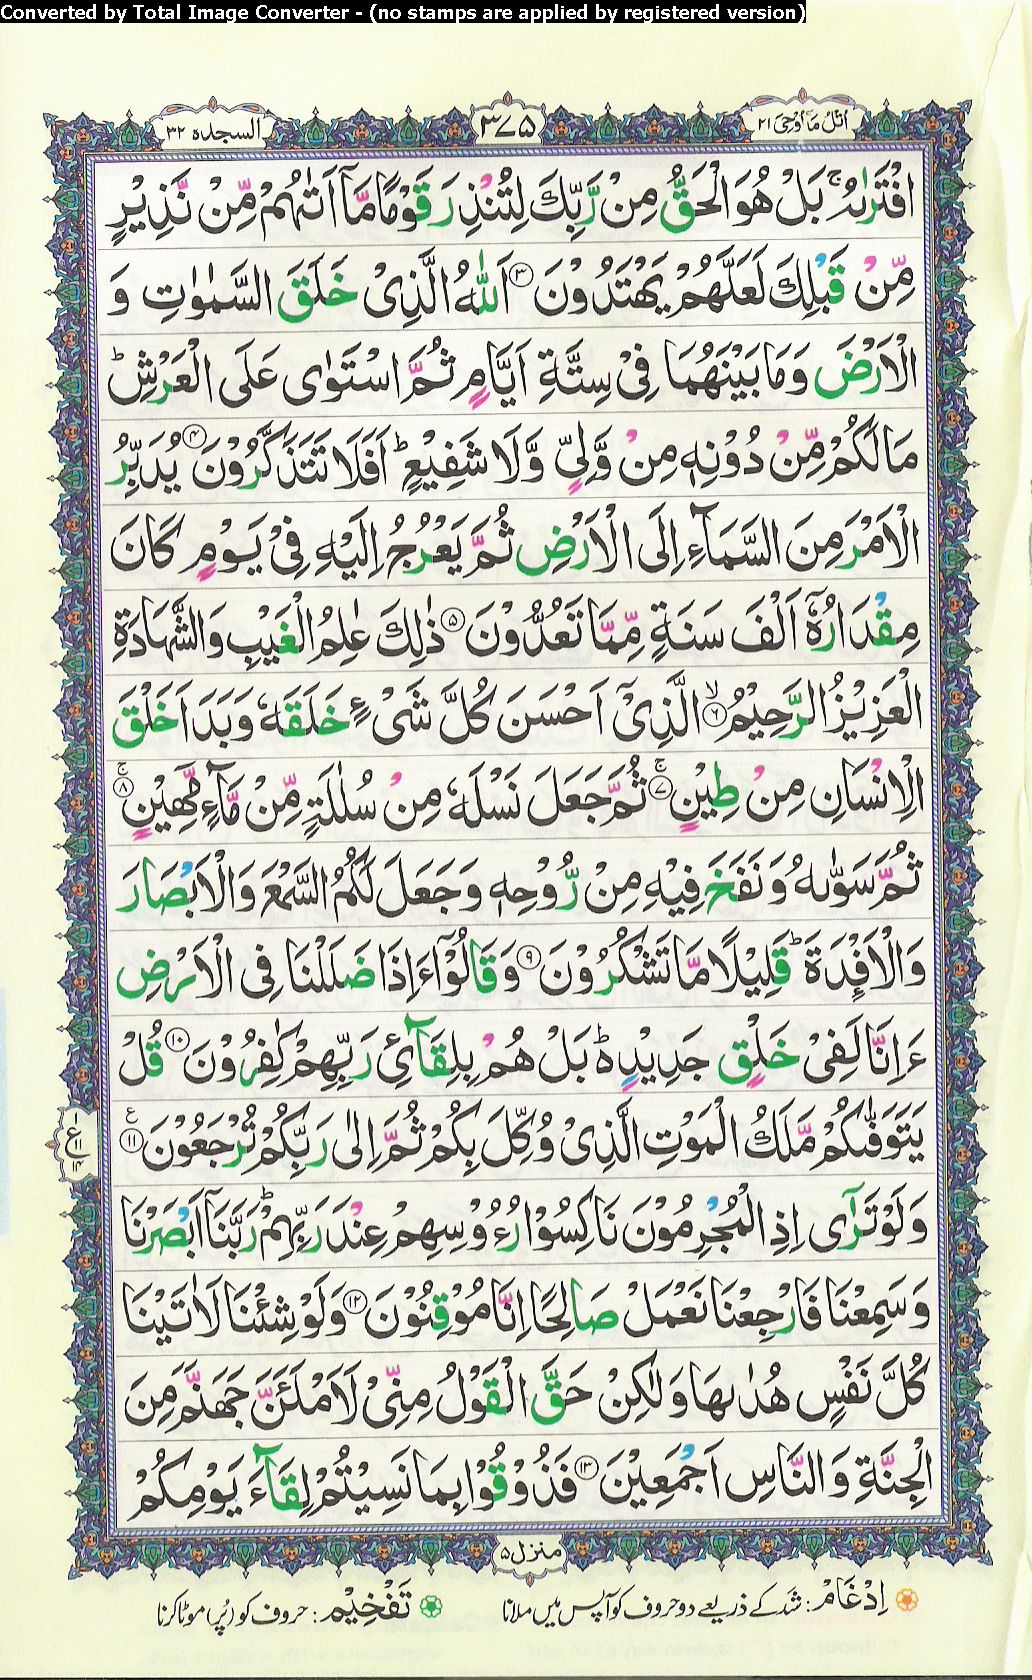 Converted by Total Image Converter - (no stamps are applied by registered version)
اتل ما اوحی ۲۱
۳۷۵
السجدہ ۳۲
افْتَرٰىهُ ۚ بَلْ هُوَ الْحَقُّ مِنْ رَّبِّكَ لِتُنْذِرَ قَوْمًا مَّاۤ اَتٰىهُمْ مِّنْ نَّذِیْرٍ
مِّنْ قَبْلِكَ لَعَلَّهُمْ یَهْتَدُوْنَ ۳ اَللّٰهُ الَّذِیْ خَلَقَ السَّمٰوٰتِ وَ
الْاَرْضَ وَمَا بَیْنَهُمَا فِیْ سِتَّةِ اَیَّامٍ ثُمَّ اسْتَوٰی عَلَی الْعَرْشِ ؕ
مَا لَكُمْ مِّنْ دُوْنِهٖ مِنْ وَّلِیٍّ وَّلَا شَفِیْعٍ ؕ اَفَلَا تَتَذَكَّرُوْنَ ۴ یُدَبِّرُ
الْاَمْرَ مِنَ السَّمَآءِ اِلَی الْاَرْضِ ثُمَّ یَعْرُجُ اِلَیْهِ فِیْ یَوْمٍ كَانَ
مِقْدَارُهٗۤ اَلْفَ سَنَةٍ مِّمَّا تَعُدُّوْنَ ۵ ذٰلِكَ عٰلِمُ الْغَیْبِ وَالشَّهَادَةِ
الْعَزِیْزُ الرَّحِیْمُ ۙ۶ الَّذِیْۤ اَحْسَنَ كُلَّ شَیْءٍ خَلَقَهٗ وَبَدَاَ خَلْقَ
الْاِنْسَانِ مِنْ طِیْنٍ ۚ۷ ثُمَّ جَعَلَ نَسْلَهٗ مِنْ سُلٰلَةٍ مِّنْ مَّآءٍ مَّهِیْنٍ ۚ۸
ثُمَّ سَوّٰىهُ وَنَفَخَ فِیْهِ مِنْ رُّوْحِهٖ وَجَعَلَ لَكُمُ السَّمْعَ وَالْاَبْصَارَ
وَالْاَفْـِٕدَةَ ؕ قَلِیْلًا مَّا تَشْكُرُوْنَ ۹ وَقَالُوْۤا ءَاِذَا ضَلَلْنَا فِی الْاَرْضِ
ءَاِنَّا لَفِیْ خَلْقٍ جَدِیْدٍ ؕ۬ بَلْ هُمْ بِلِقَآئِ رَبِّهِمْ كٰفِرُوْنَ ۱۰ قُلْ
یَتَوَفّٰىكُمْ مَّلَكُ الْمَوْتِ الَّذِیْ وُكِّلَ بِكُمْ ثُمَّ اِلٰی رَبِّكُمْ تُرْجَعُوْنَ ۱۱ ع
۱
ع ۱۱
۱۴
وَلَوْ تَرٰۤی اِذِ الْمُجْرِمُوْنَ نَاكِسُوْا رُءُوْسِهِمْ عِنْدَ رَبِّهِمْ ؕ رَبَّنَاۤ اَبْصَرْنَا
وَسَمِعْنَا فَارْجِعْنَا نَعْمَلْ صَالِحًا اِنَّا مُوْقِنُوْنَ ۱۲ وَلَوْ شِئْنَا لَاٰتَیْنَا
كُلَّ نَفْسٍ هُدٰىهَا وَلٰكِنْ حَقَّ الْقَوْلُ مِنِّیْ لَاَمْلَـَٔنَّ جَهَنَّمَ مِنَ
الْجِنَّةِ وَالنَّاسِ اَجْمَعِیْنَ ۱۳ فَذُوْقُوْا بِمَا نَسِیْتُمْ لِقَآءَ یَوْمِكُمْ
منزل ۵
اِدْغَامْ : شد کے ذریعے دو حروف کو آپس میں ملانا
تَفْخِیْم : حروف کو (پُر) موٹا کرنا